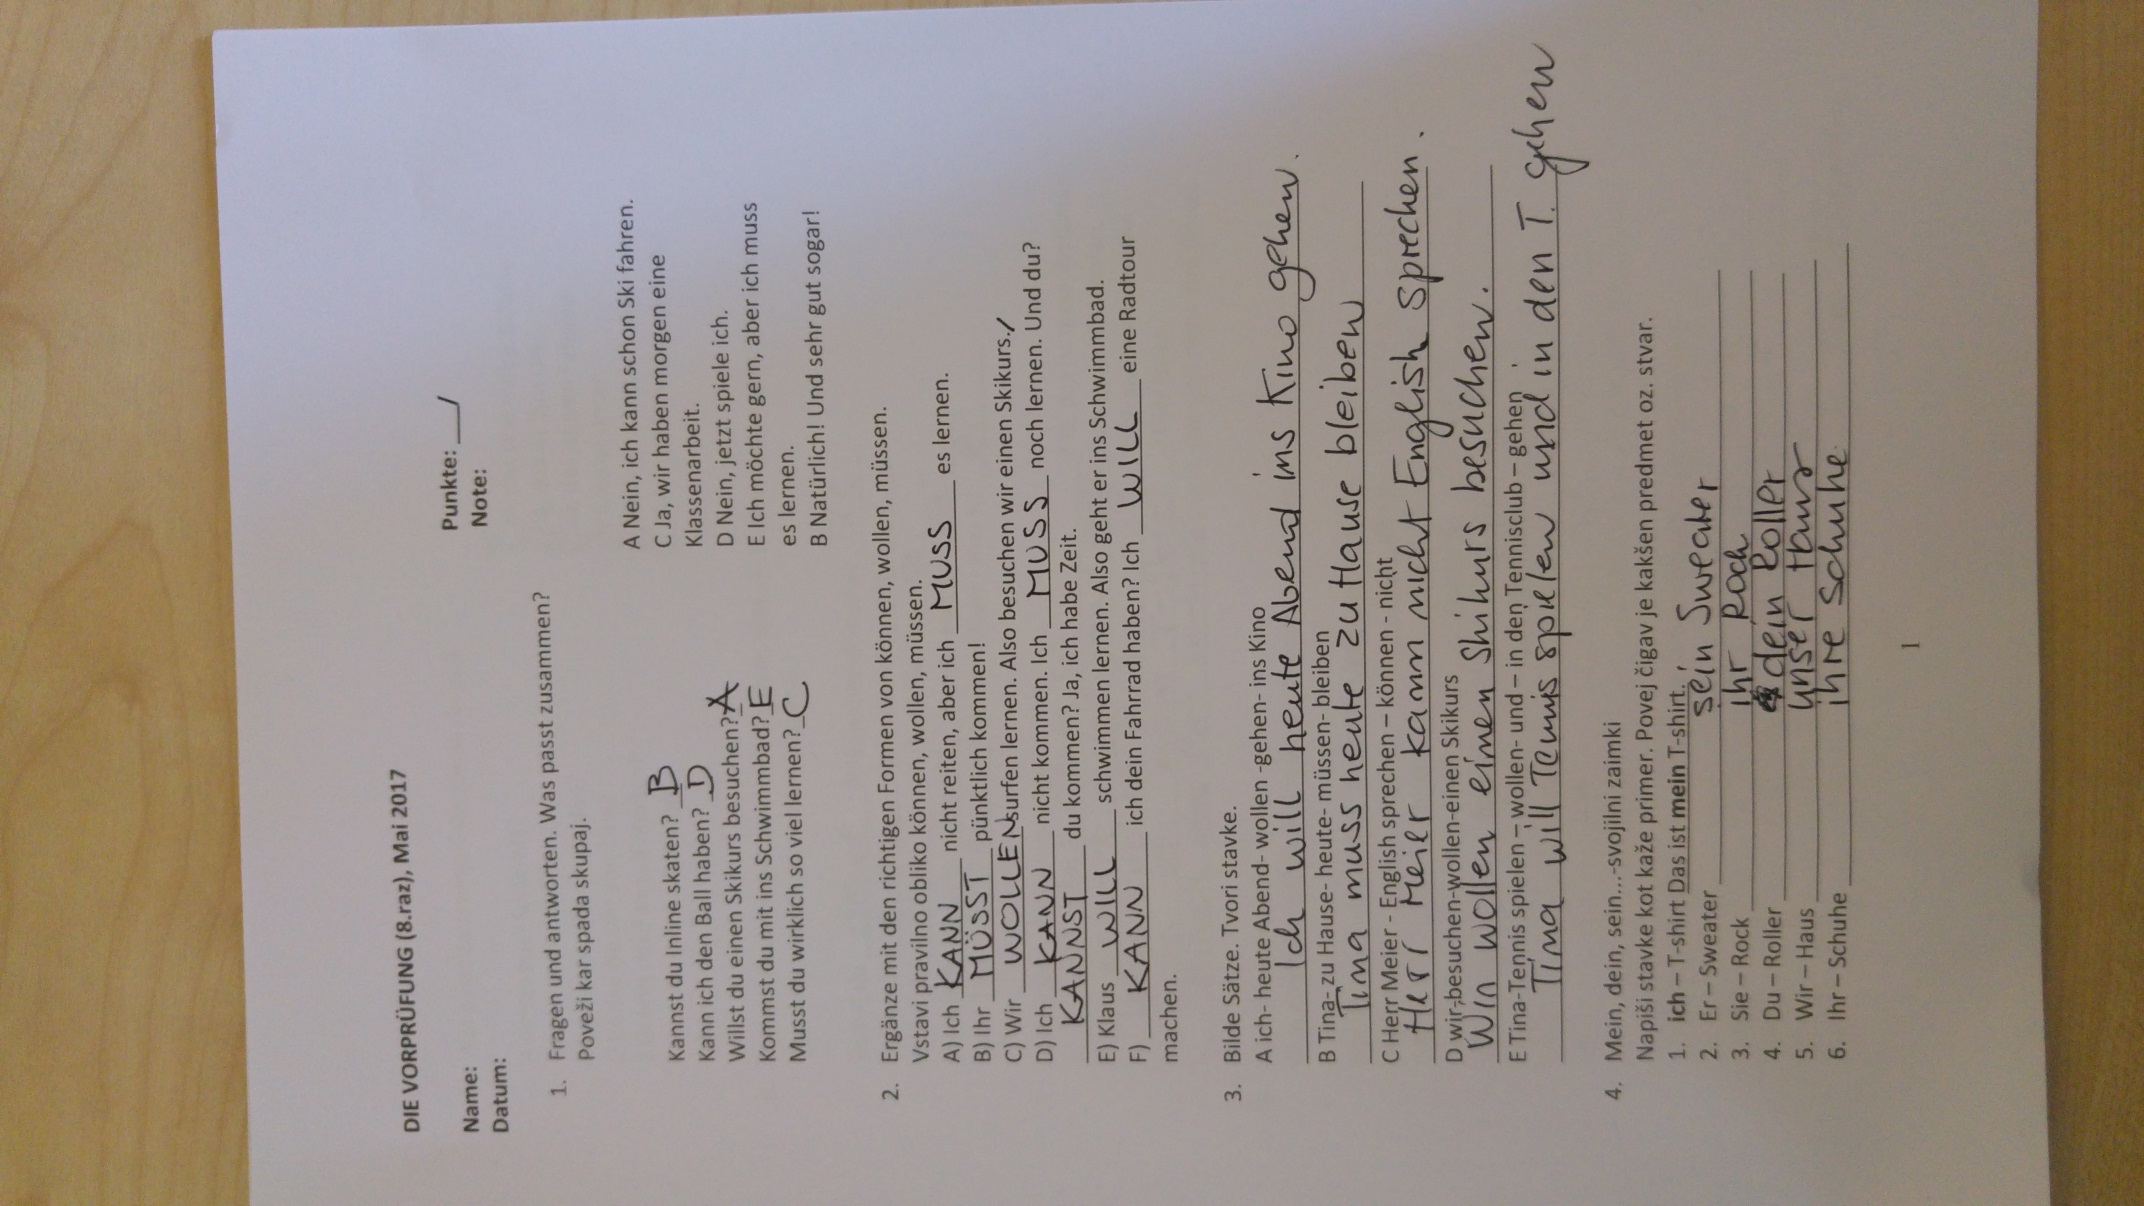 DIE VORPRÜFUNG (8.raz), Mai 2017
Name: Punkte: ___/
Datum: Note:
1. Fragen und antworten. Was passt zusammen?
Poveži kar spada skupaj.
Kannst du Inline skaten? B
Kann ich den Ball haben? D
Willst du einen Skikurs besuchen? A
Kommst du mit ins Schwimmbad? E
Musst du wirklich so viel lernen? C
A Nein, ich kann schon Ski fahren.
C Ja, wir haben morgen eine
Klassenarbeit.
D Nein, jetzt spiele ich.
E Ich möchte gern, aber ich muss
es lernen.
B Natürlich! Und sehr gut sogar!
2. Ergänze mit den richtigen Formen von können, wollen, müssen.
Vstavi pravilno obliko können, wollen, müssen.
A) Ich KANN nicht reiten, aber ich MUSS es lernen.
B) Ihr MÜSST pünktlich kommen!
C) Wir WOLLEN surfen lernen. Also besuchen wir einen Skikurs./
D) Ich KANN nicht kommen. Ich MUSS noch lernen. Und du?
KANNST du kommen? Ja, ich habe Zeit.
E) Klaus WILL schwimmen lernen. Also geht er ins Schwimmbad.
F) KANN ich dein Fahrrad haben? Ich WILL eine Radtour
machen.
3. Bilde Sätze. Tvori stavke.
A ich- heute Abend- wollen -gehen- ins Kino
Ich will heute Abend ins Kino gehen.
B Tina- zu Hause- heute- müssen- bleiben
Tina muss heute zu Hause bleiben
C Herr Meier - English sprechen – können - nicht
Herr Meier kann nicht English sprechen.
D wir-besuchen-wollen-einen Skikurs
Win wollen einen Skikurs besuchen.
E Tina-Tennis spielen – wollen- und – in den Tennisclub – gehen
Tina will Tennis spielen und in den T. gehen
4. Mein, dein, sein...-svojilni zaimki
Napiši stavke kot kaže primer. Povej čigav je kakšen predmet oz. stvar.
1. ich – T-shirt Das ist mein T-shirt.
2. Er – Sweater sein Sweater
3. Sie – Rock ihr Rock
4. Du – Roller dein Roller
5. Wir – Haus unser Haus
6. Ihr – Schuhe ihre Schuhe
1